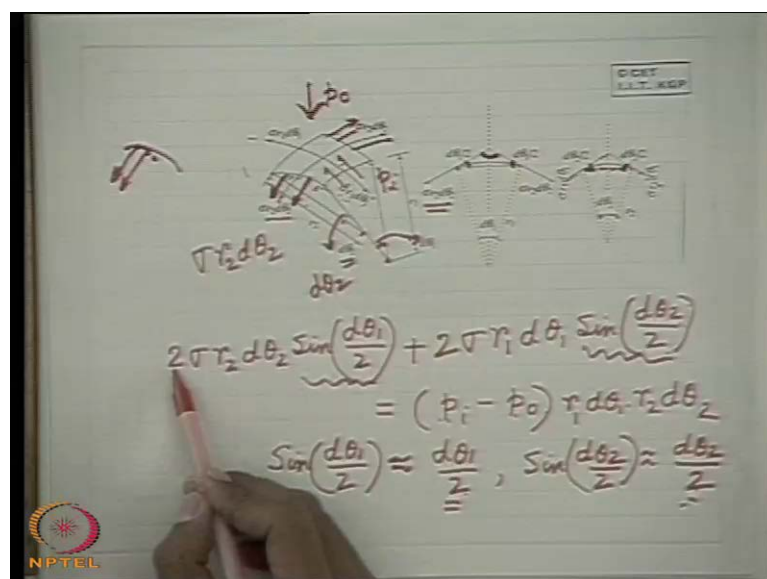 © CET
I.I.T. KGP
p₀
pᵢ
σ r₂ dθ₂
dθ₂
2σ r₂ dθ₂ Sin(dθ₁/2) + 2σ r₁ dθ₁ Sin(dθ₂/2)
= (pᵢ - p₀) r₁ dθ₁. r₂ dθ₂
Sin(dθ₁/2) ≈ dθ₁/2 , Sin(dθ₂/2) ≈ dθ₂/2
NPTEL